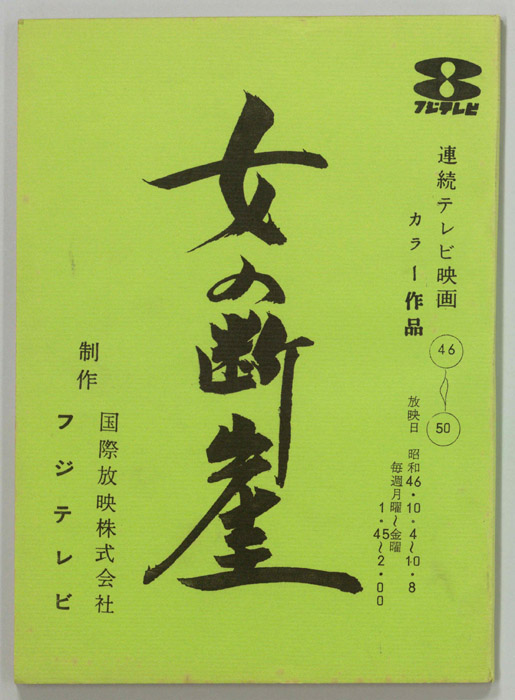 フジテレビ
連続テレビ映画
カラー作品
46
〜
50
放映日 昭和46・10・4〜10・8
毎週月曜〜金曜
1・45〜2・00
女の断崖
制作
国際放映株式会社
フジテレビ